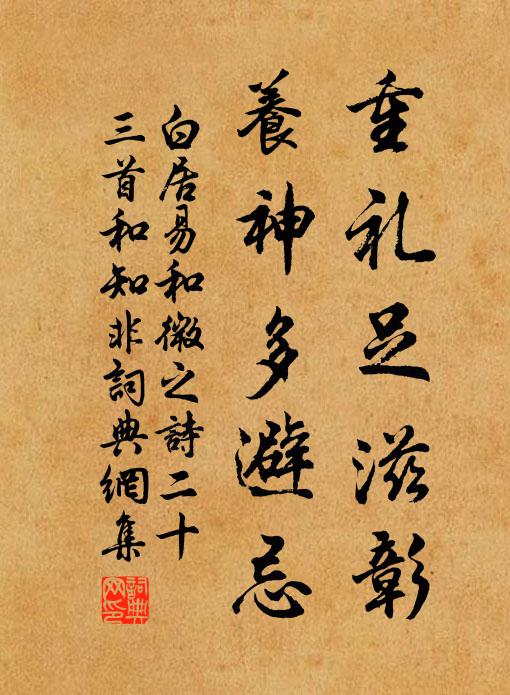 重礼足滋彰
養神多避忌
白居易和微之詩二十
三首和知非詞典網集
詞典網印